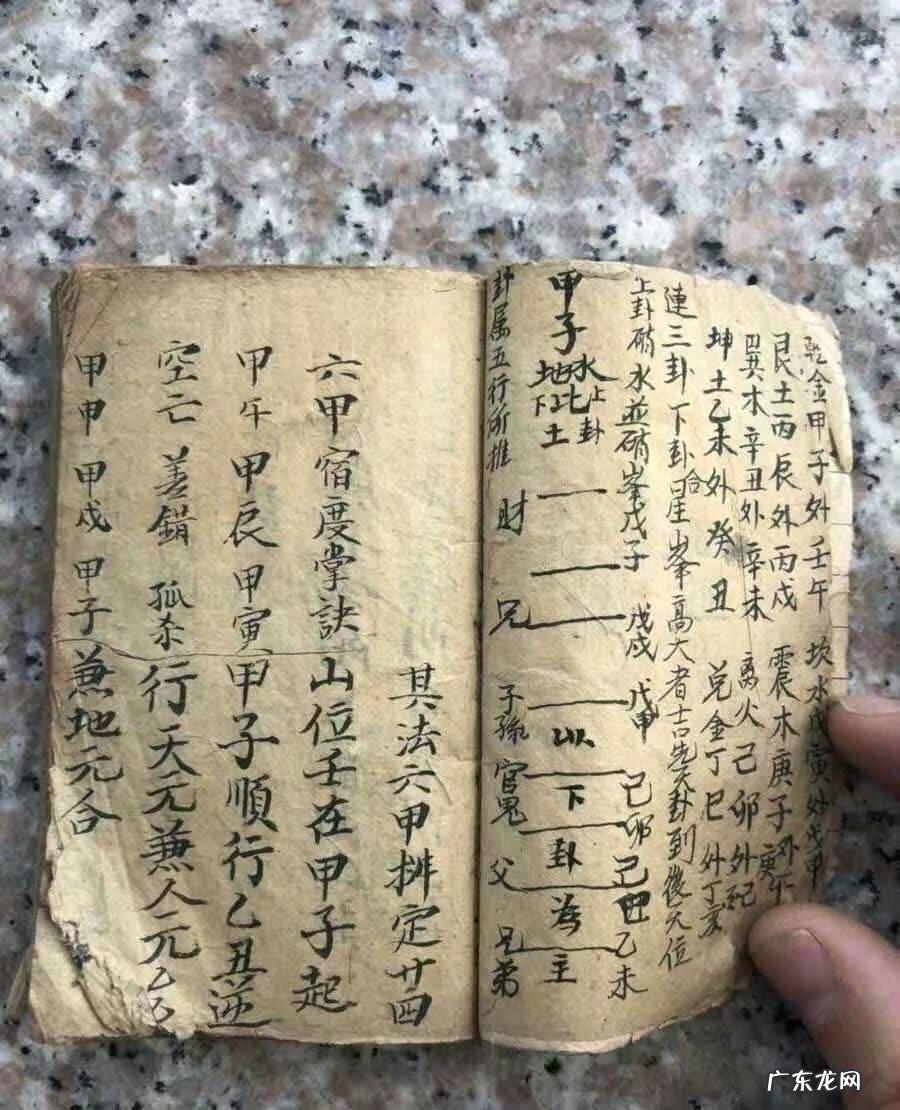 乾金甲子外壬午 坎水戊寅外戊申
艮土丙辰外丙戌 震木庚子外庚午
巽木辛丑外辛未 离火己卯外己
坤土乙未外癸丑 兑金丁巳外丁亥
連三卦下卦合星峯高大者吉先天卦到後天位
上卦硝水並硝峯戊子 戊戌 戊申 己卯 己巳 乙未
甲子
水地比 上卦
下土
以下卦為主
財 兄 子孫 官鬼 父 兄弟
卦属五行所推
其法六甲排定廿四
六甲宿度掌訣 山位壬在甲子起
甲午 甲辰 甲寅 甲子順行乙丑逆
空亡 差錯 孤杀 行天元兼人元乙
甲申 甲戌 甲子 兼地元合
广东龙网